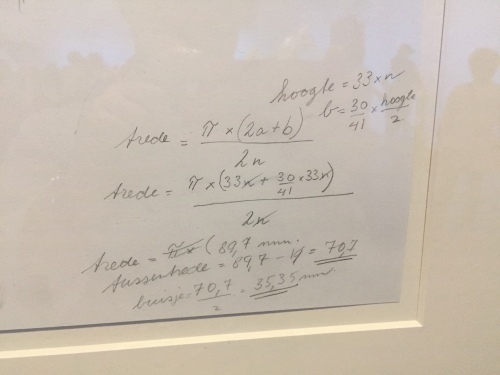 hoogte = 33 x n
b = 30/41 x hoogte/2
trede = π x (2a + b) / 2n
trede = π x (33n + 30/41 x 33n) / 2n
trede = π x ( 89,7 mm.
tussentrede = 89,7 - 19 = 70,7
buisje = 70,7/2 = 35,35 mm.